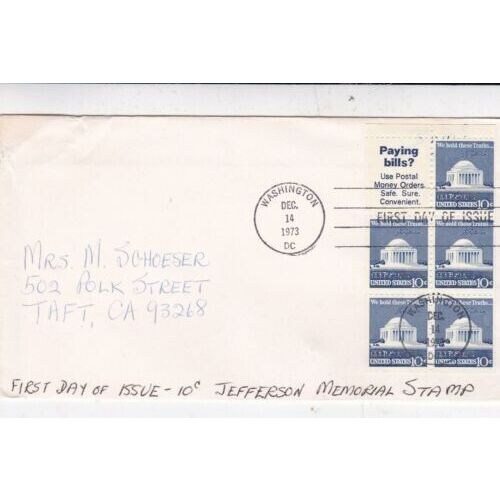 Paying
bills?
Use Postal
Money Orders.
Safe. Sure.
Convenient.
We hold these Truths...
UNITED STATES 10c
WASHINGTON
DEC.
14
1973
DC
FIRST DAY OF ISSUE
We hold these Truths...
UNITED STATES 10c
We hold these Truths...
UNITED STATES 10c
MRS. M. SCHOESER
502 POLK STREET
TAFT, CA 93268
We hold these Truths...
UNITED STATES 10c
We hold these Truths...
UNITED STATES 10c
WASHINGTON
DEC.
14
1973
DC
FIRST DAY OF ISSUE - 10c JEFFERSON MEMORIAL STAMP